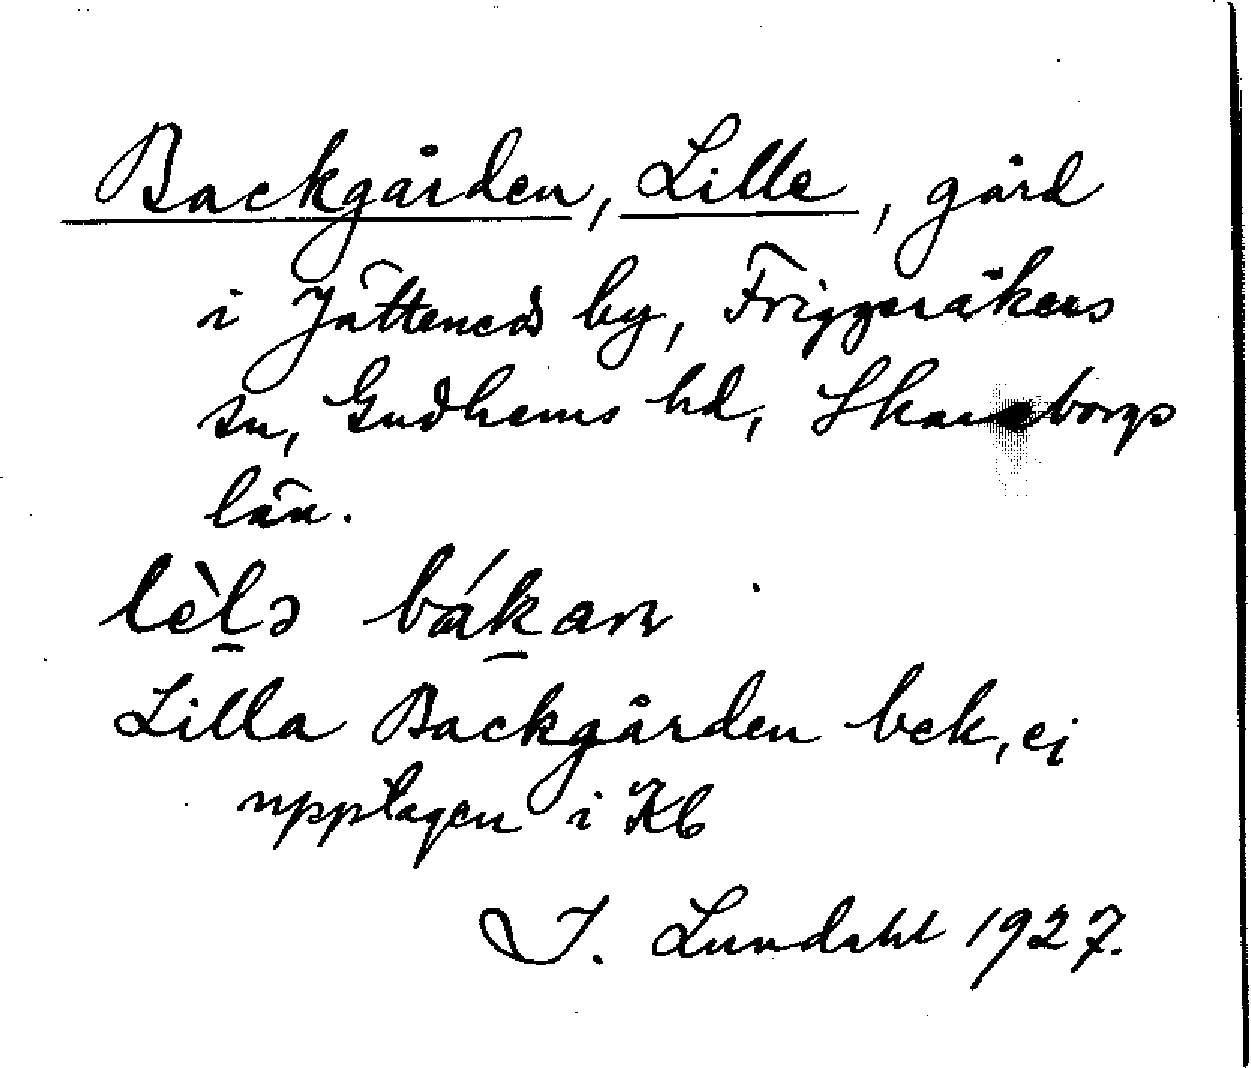 Backgården, Lille, gård
i Jättened's by, Friggeråkers
sn, Gudhems hd, Skaraborgs
län.
lèlə bákan
Lilla Backgården bek, ej
upptagen i Kb
I. Lundahl 1927.